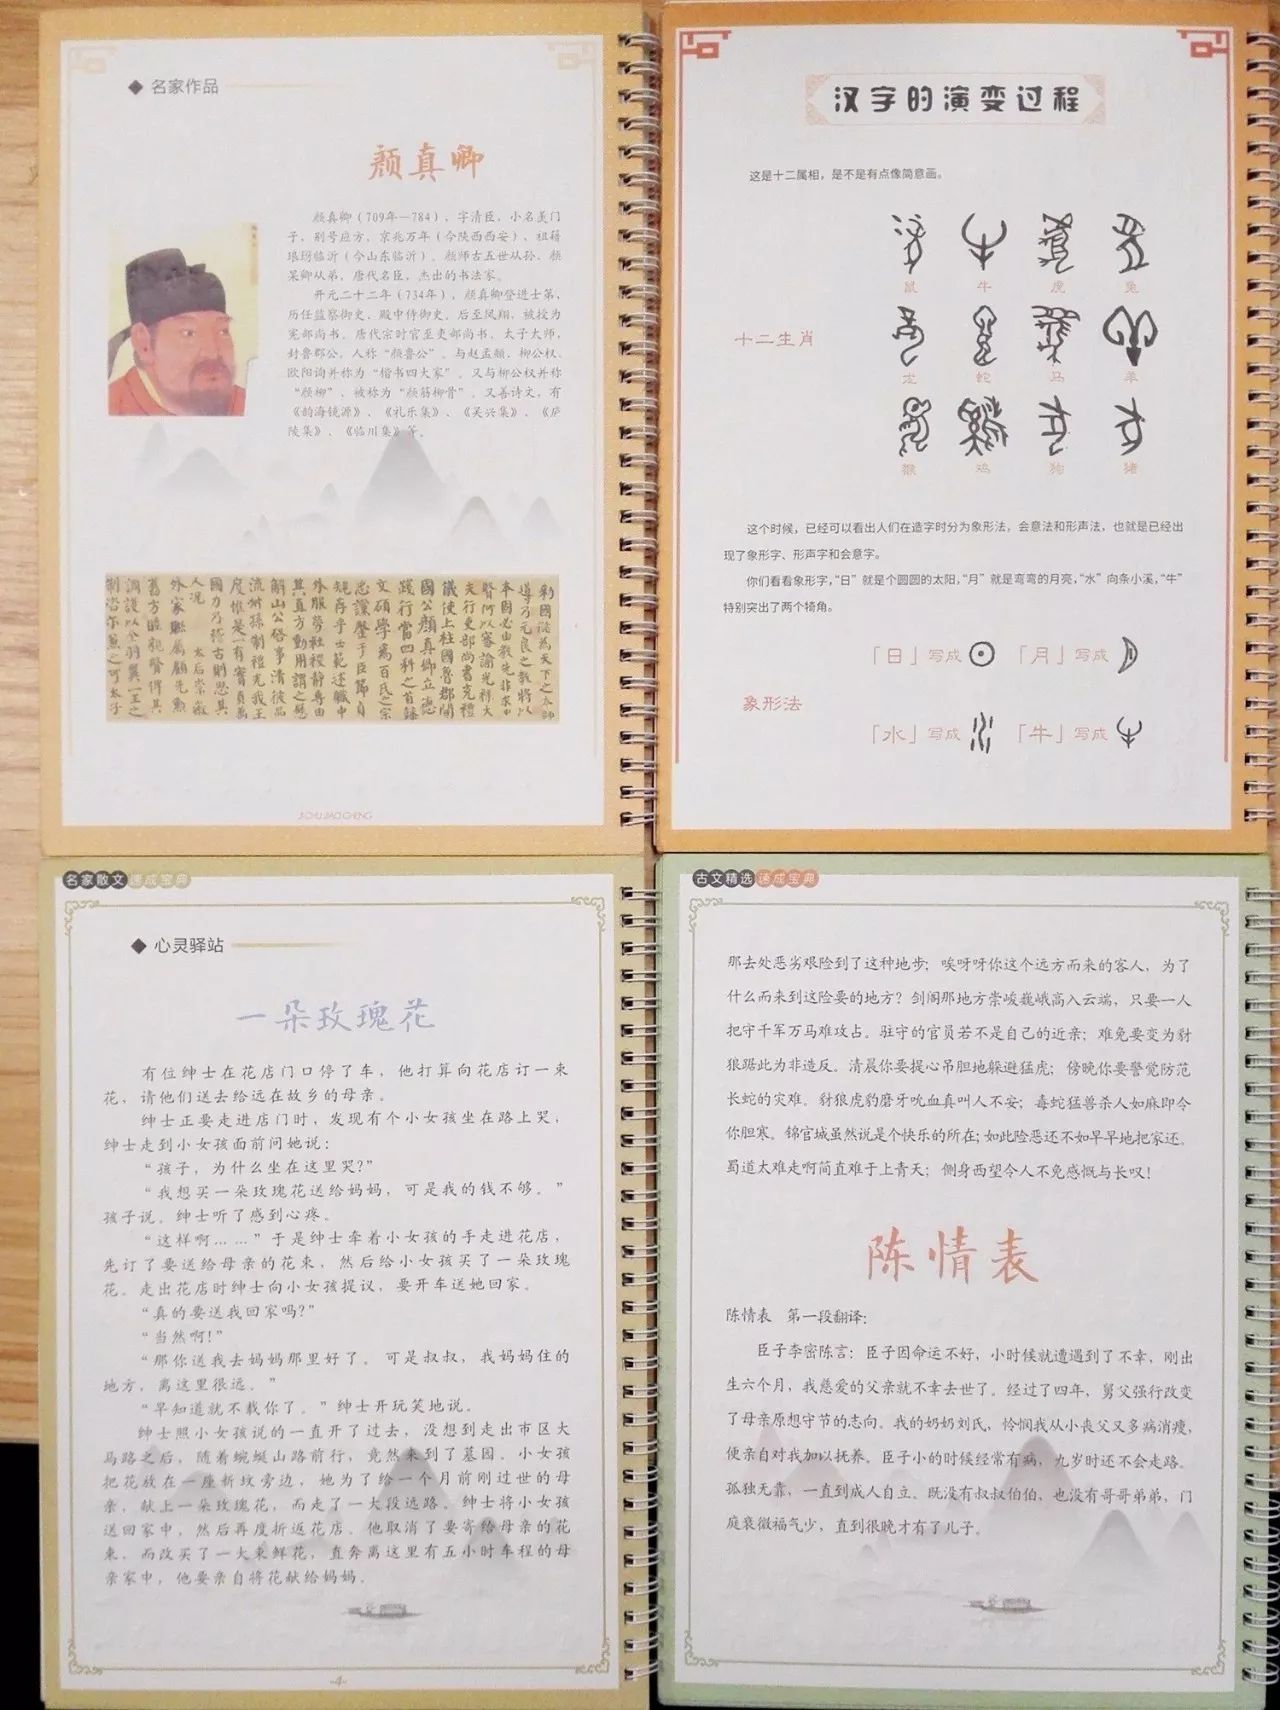 ◆ 名家作品
颜真卿
颜真卿（709年—784），字清臣，小名羡门
子，别号应方，京兆万年（今陕西西安），祖籍
琅琊临沂（今山东临沂）。颜师古五世从孙、颜
杲卿从弟，唐代名臣，杰出的书法家。
开元二十二年（734年），颜真卿登进士第，
历任监察御史、殿中侍御史。后至凤翔，被授为
宪部尚书。唐代宗时官至吏部尚书、太子太师，
封鲁郡公，人称“颜鲁公”。与赵孟頫、柳公权、
欧阳询并称为“楷书四大家”。又与柳公权并称
“颜柳”，被称为“颜筋柳骨”。又善诗文，有
《韵海镜源》、《礼乐集》、《吴兴集》、《庐
陵集》、《临川集》等。
汉字的演变过程
这是十二属相，是不是有点像简意画。
十二生肖
鼠 牛 虎 兔
龙 蛇 马 羊
猴 鸡 狗 猪
这个时候，已经可以看出人们在造字时分为象形法，会意法和形声法，也就是已经出
现了象形字、形声字和会意字。
你们看看象形字，“日”就是个圆圆的太阳，“月”就是弯弯的月亮，“水”向条小溪，“牛”
特别突出了两个犄角。
象形法
「日」写成 「月」写成
「水」写成 「牛」写成
名家散文速成宝典
◆ 心灵驿站
一朵玫瑰花
有位绅士在花店门口停了车，他打算向花店订一束
花，请他们送去给远在故乡的母亲。
绅士正要走进店门时，发现有个小女孩坐在路上哭，
绅士走到小女孩面前问她说：
“孩子，为什么坐在这里哭？”
“我想买一朵玫瑰花送给妈妈，可是我的钱不够。”
孩子说。绅士听了感到心疼。
“这样啊……”于是绅士牵着小女孩的手走进花店，
先订了要送给母亲的花束，然后给小女孩买了一朵玫瑰
花。走出花店时绅士向小女孩提议，要开车送她回家。
“真的要送我回家吗？”
“当然啊！”
“那你送我去妈妈那里好了。可是叔叔，我妈妈住的
地方，离这里很远。”
“早知道就不载你了。”绅士开玩笑地说。
绅士照小女孩说的一直开了过去，没想到走出市区大
马路之后，随着蜿蜒山路前行，竟然来到了墓园。小女孩
把花放在一座新坟旁边，她为了给一个月前刚过世的母
亲，献上一朵玫瑰花，而走了一大段远路。绅士将小女孩
送回家中，然后再度折返花店。他取消了要寄给母亲的花
束，而改买了一大束鲜花，直奔离这里有五小时车程的母
亲家中，他要亲自将花献给妈妈。
-4-
古文精选速成宝典
那去处恶劣艰险到了这种地步；唉呀呀你这个远方而来的客人，为了
什么而来到这险要的地方？剑阁那地方崇峻巍峨高入云端，只要一人
把守千军万马难攻占。驻守的官员若不是自己的近亲；难免要变为豺
狼踞此为非造反。清晨你要提心吊胆地躲避猛虎；傍晚你要警觉防范
长蛇的灾难。豺狼虎豹磨牙吮血真叫人不安；毒蛇猛兽杀人如麻即令
你胆寒。锦官城虽然说是个快乐的所在；如此险恶还不如早早地把家还。
蜀道太难走啊简直难于上青天；侧身西望令人不免感慨与长叹！
陈情表
陈情表 第一段翻译：
臣子李密陈言：臣子因命运不好，小时候就遭遇到了不幸，刚出
生六个月，我慈爱的父亲就不幸去世了。经过了四年，舅父强行改变
了母亲原想守节的志向。我的奶奶刘氏，怜悯我从小丧父又多病消瘦，
便亲自对我加以抚养。臣子小的时候经常有病，九岁时还不会走路。
孤独无靠，一直到成人自立。既没有叔叔伯伯，也没有哥哥弟弟，门
庭衰微福气少，直到很晚才有了儿子。